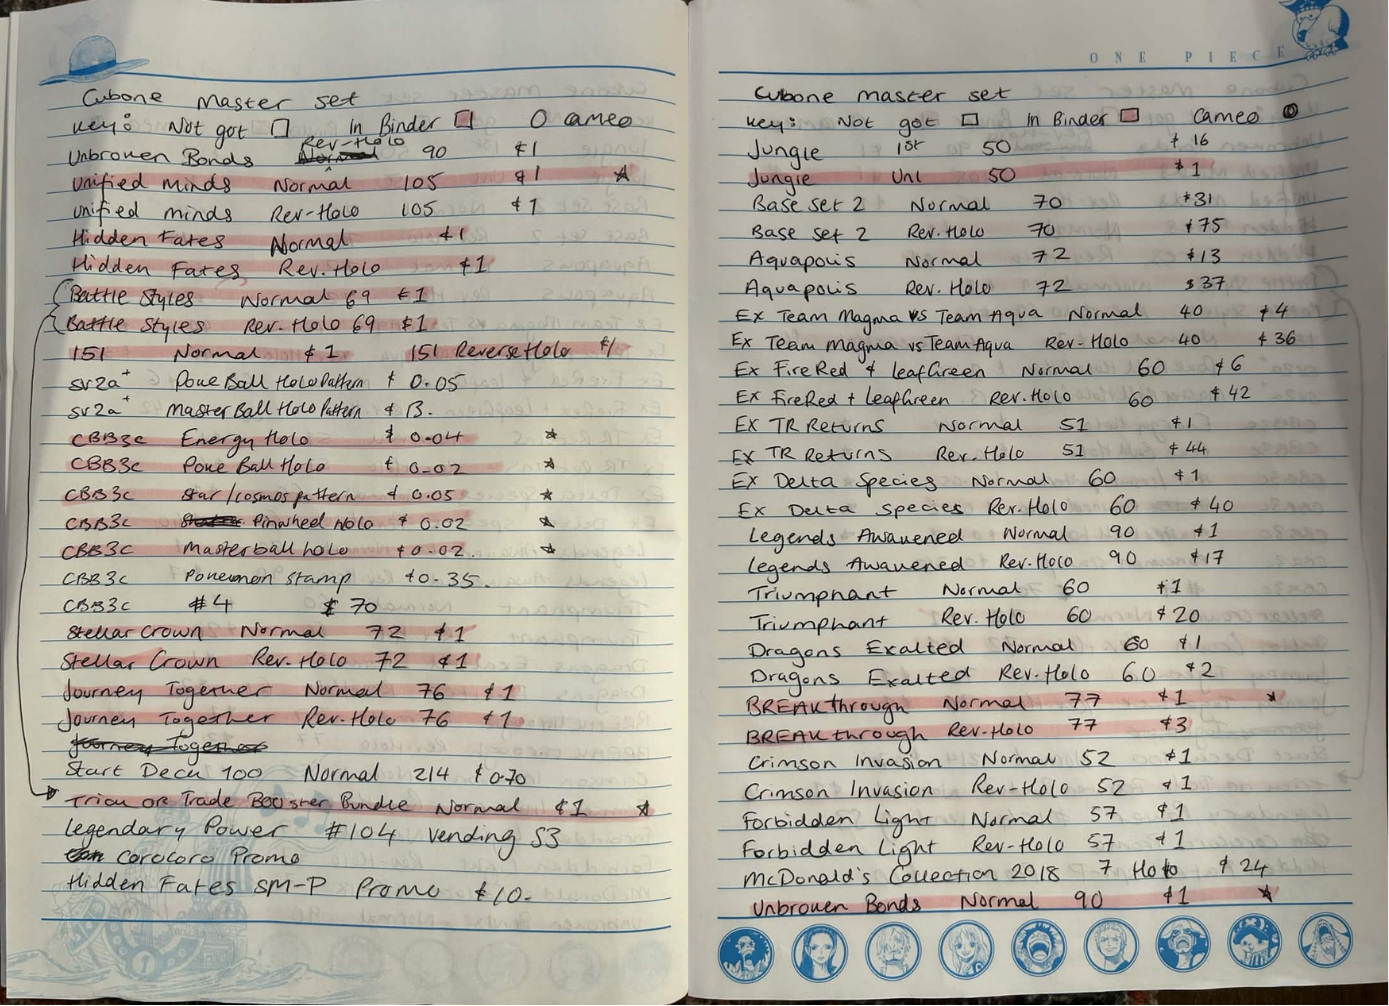 Cubone master set
Key: Not got In Binder O cameo
Rev-Holo
Unbroken Bonds Normal 90 $1
Unified minds Normal 105 $1 ★
Unified minds Rev-Holo 105 $1
Hidden Fates Normal $1
Hidden Fates Rev. Holo $1
Battle Styles Normal 69 $1
Battle Styles Rev. Holo 69 $1
151 Normal $1 151 Reverse Holo $1
sv2a+ Poke Ball Holo Pattern $ 0.05
sv2a+ Master Ball Holo Pattern $ 13.
CBB3c Energy Holo $ 0.04 ★
CBB3c Poke Ball Holo $ 0.02 ★
CBB3c Star/cosmos pattern $ 0.05 ★
CBB3c Pinwheel Holo $ 0.02 ★
CBB3c Masterball holo $0.02. ★
CBB3c Pokemon stamp $0.35.
CBB3c #4 $ 70
Stellar Crown Normal 72 $1
Stellar Crown Rev. Holo 72 $1
Journey Together Normal 76 $1
Journey Together Rev. Holo 76 $1
Journey Together
Start Deck 100 Normal 214 $0.70
Trick or Trade BOOster Bundle Normal $1 ★
Legendary Power #104 Vending S3
corocoro Promo
Hidden Fates SM-P Promo $10.
ONE PIECE
Cubone master set
Key: Not got In Binder Cameo
Jungle 1st 50 $16
Jungle Unl 50 $1
Base set 2 Normal 70 $31
Base set 2 Rev. Holo 70 $75
Aquapolis Normal 72 $13
Aquapolis Rev. Holo 72 $37
Ex Team Magma VS Team Aqua Normal 40 $4
Ex Team Magma vs Team Aqua Rev-Holo 40 $36
Ex FireRed + leafGreen Normal 60 $6
Ex FireRed + LeafGreen Rev. Holo 60 $42
Ex TR Returns Normal 51 $1
Ex TR Returns Rev. Holo 51 $44
Ex Delta Species Normal 60 $1
Ex Delta Species Rev. Holo 60 $40
Legends Awakened Normal 90 $1
Legends Awakened Rev. Holo 90 $17
Triumphant Normal 60 $1
Triumphant Rev. Holo 60 $20
Dragons Exalted Normal 60 $1
Dragons Exalted Rev. Holo 60 $2
BREAKthrough Normal 77 $1 ★
BREAKthrough Rev-Holo 77 $3
Crimson Invasion Normal 52 $1
Crimson Invasion Rev-Holo 52 $1
Forbidden Light Normal 57 $1
Forbidden Light Rev-Holo 57 $1
McDonald's Collection 2018 7 Holo $24
Unbroken Bonds Normal 90 $1 ★